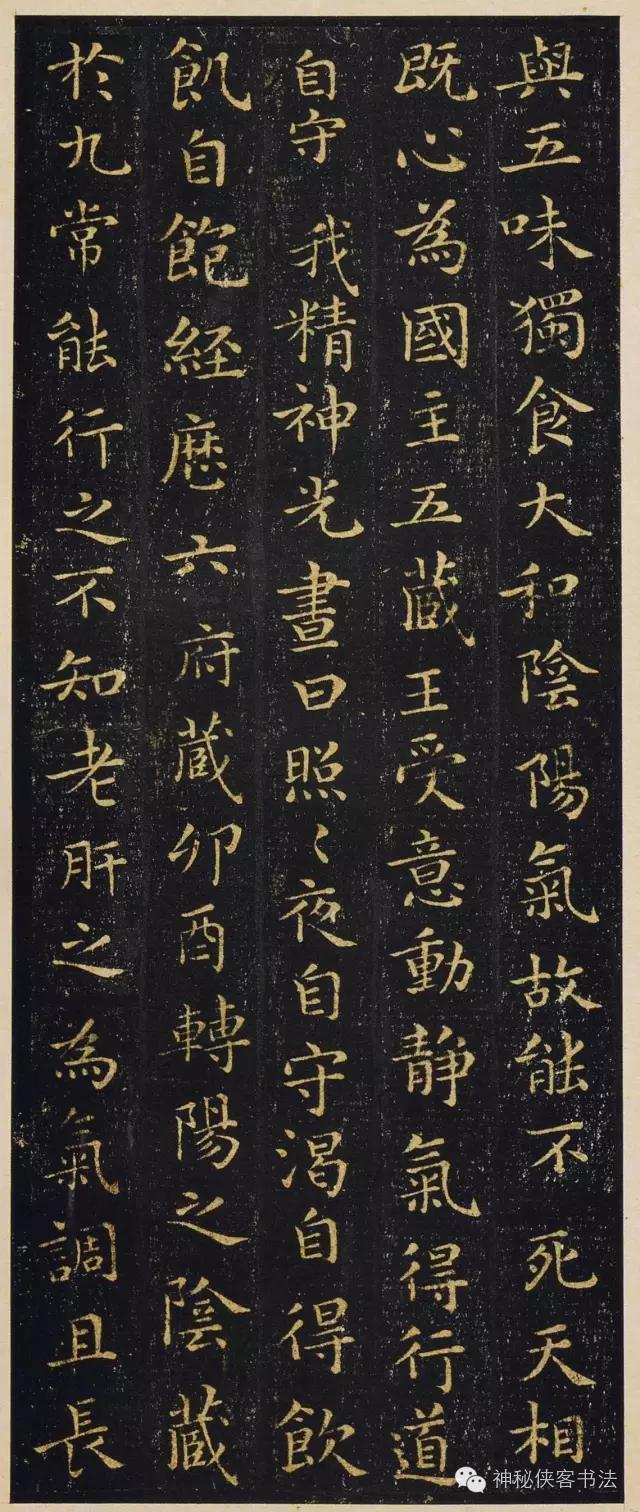 與五味獨食大和陰陽氣故能不死天相
既心為國主五蔵王受意動静氣得行道
自守我精神光晝日照〻夜自守渴自得飲
飢自飽経歴六府蔵卯酉轉陽之陰蔵
於九常能行之不知老肝之為氣調且長
神秘侠客书法